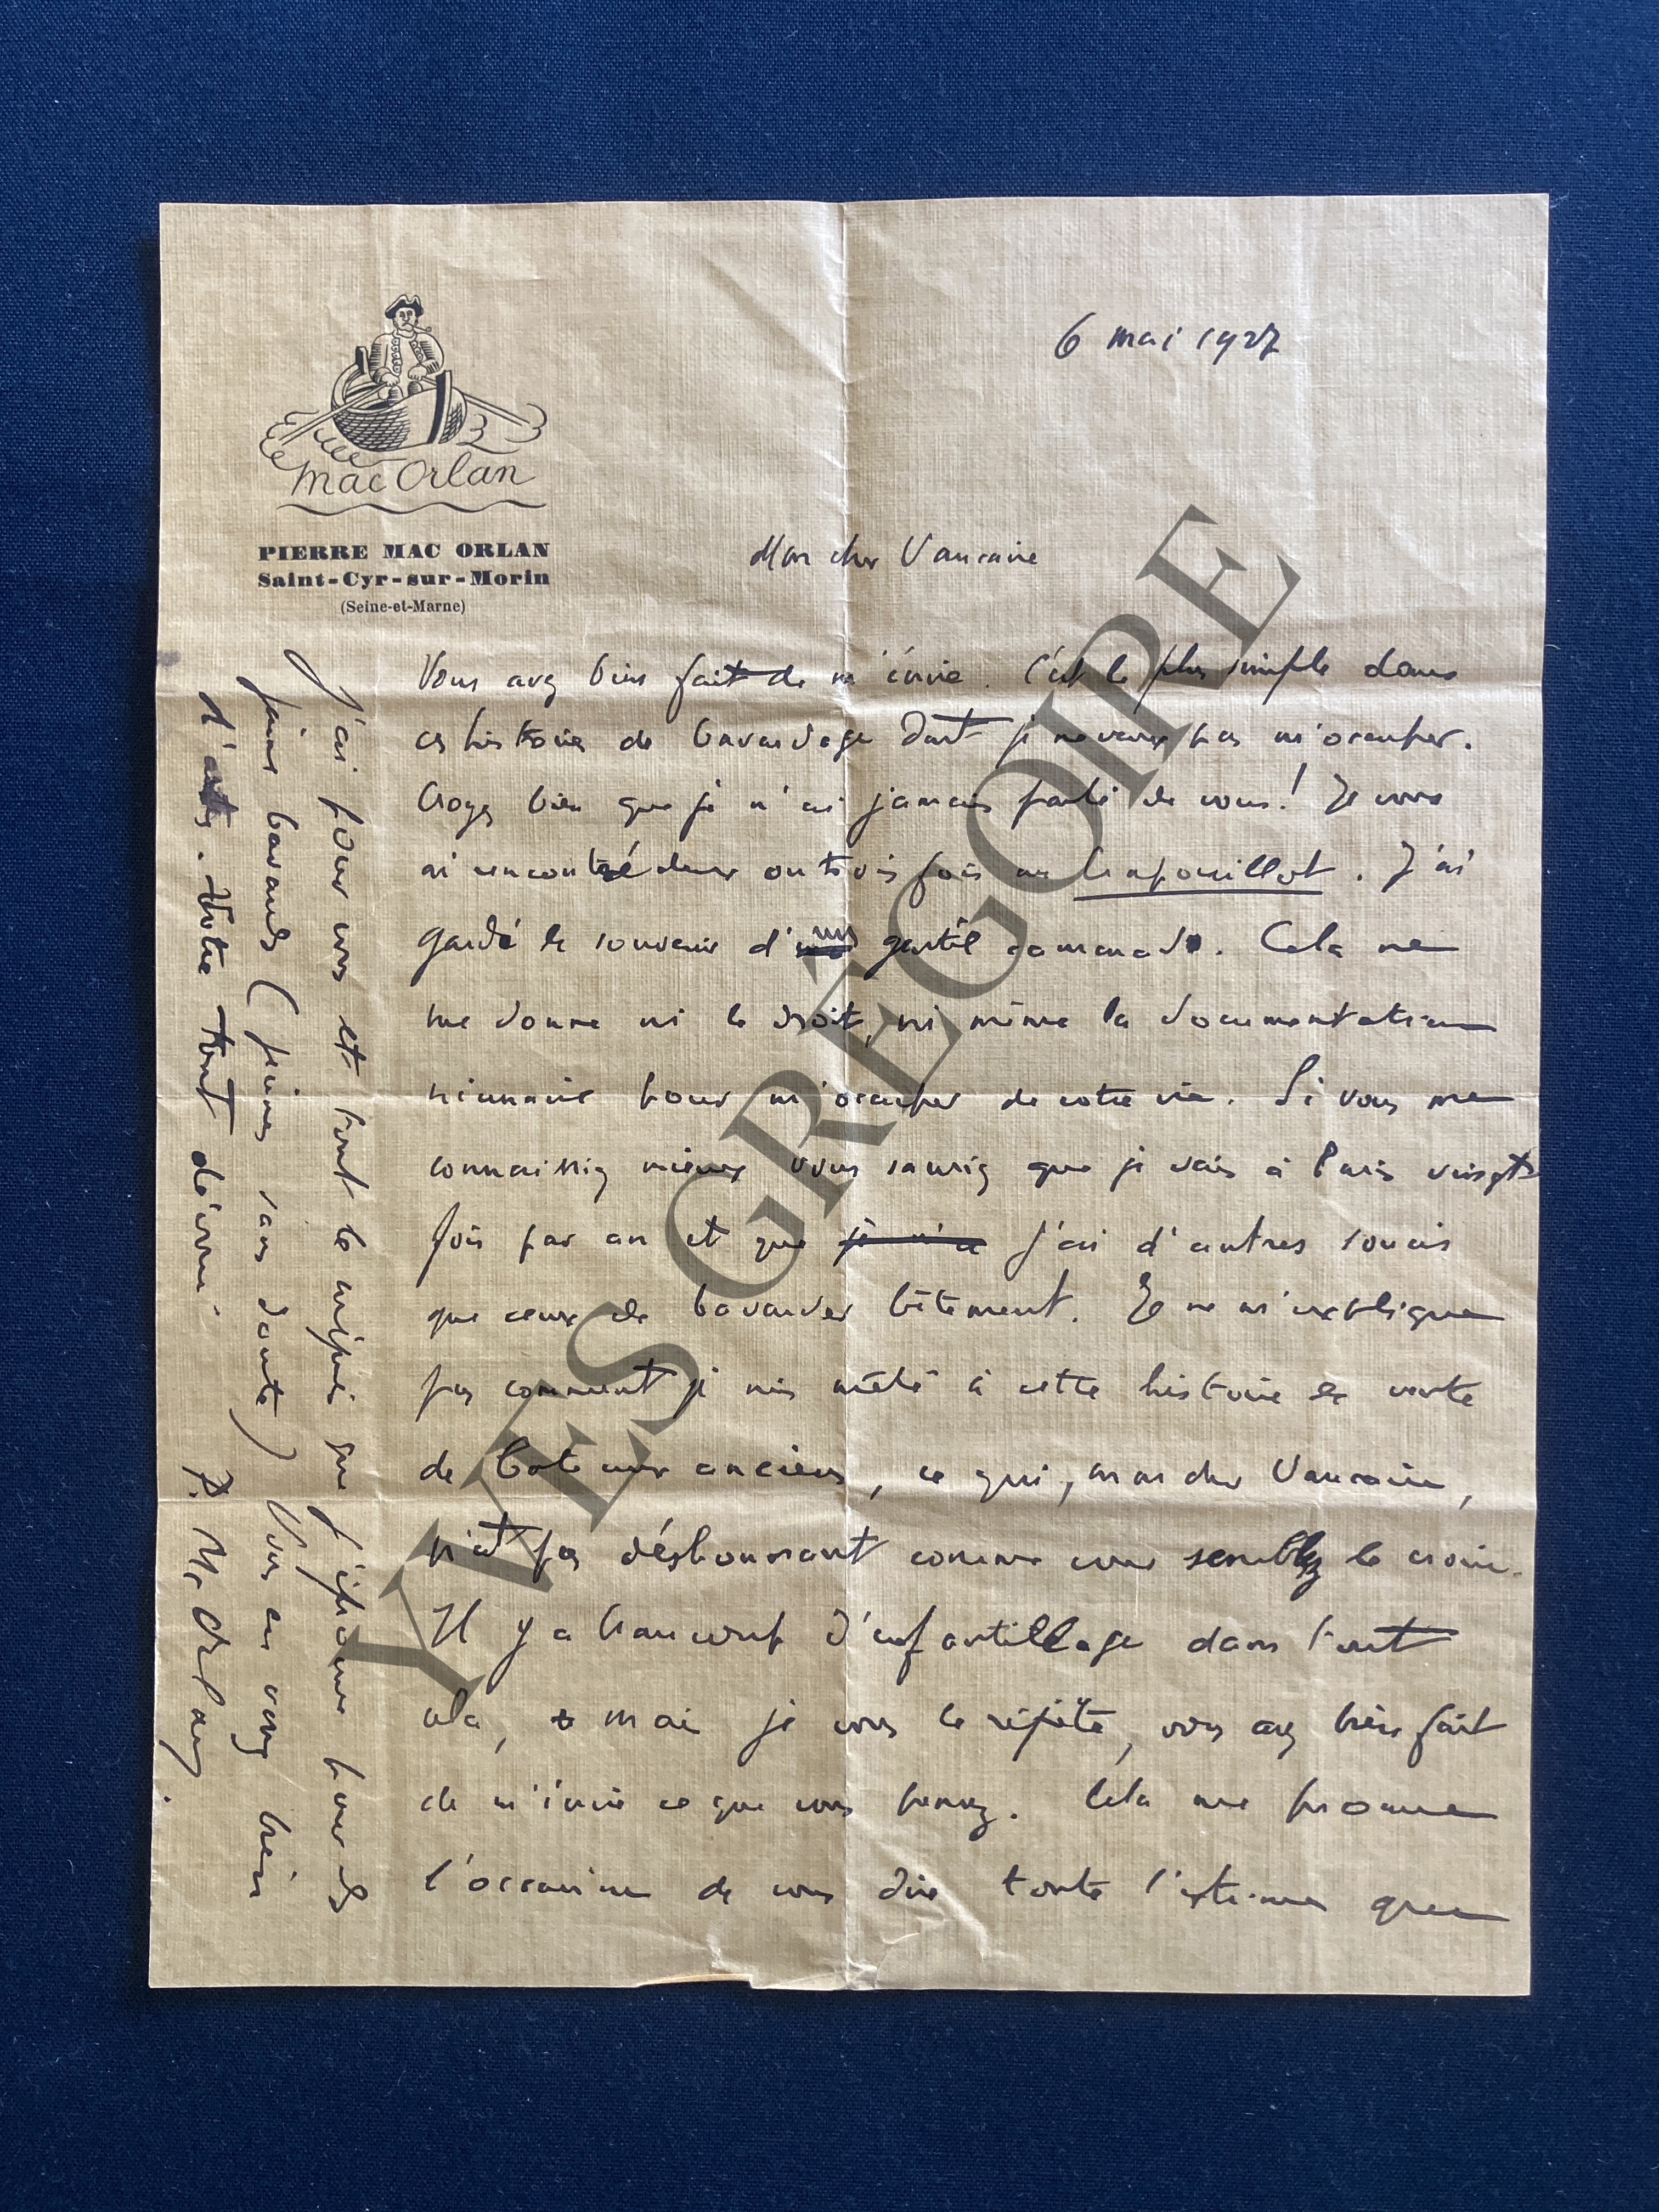 mac Orlan
PIERRE MAC ORLAN
Saint-Cyr-sur-Morin
(Seine-et-Marne)
6 mai 1927
Mon cher Vaucaire
Vous avez bien fait de m'écrire. C'est le plus simple dans
ces histoires de bavardage dont je ne veux pas m'occuper.
Croyez bien que je n'ai jamais parlé de vous ! Je vous
ai rencontré deux ou trois fois au Crapouillot. J'ai
gardé le souvenir d'un gentil camarade. Cela ne
me donne ni le droit, ni même la documentation
nécessaire pour m'occuper de votre vie. Si vous me
connaissiez mieux vous sauriez que je vais à Paris vingt
fois par an et que je n'a j'ai d'autres soucis
que ceux de bavarder bêtement. Je ne m'explique
pas comment je suis mêlé à cette histoire de vente
de bateaux anciens, ce qui, mon cher Vaucaire,
n'est pas déshonorant comme vous semblez le croire.
Il y a beaucoup d'enfantillage dans tout
cela, mais je vous le répète, vous avez bien fait
de m'écrire ce que vous pensez. Cela me procure
l'occasion de vous dire toute l'estime que
J'ai pour vous et tout le mépris que j'éprouve pour les
jeunes bavards (jeunes sans doute) Vous en avez bien
d'autres. Votre tout dévoué
P. Mc Orlan.
YVES GRÉGOIRE